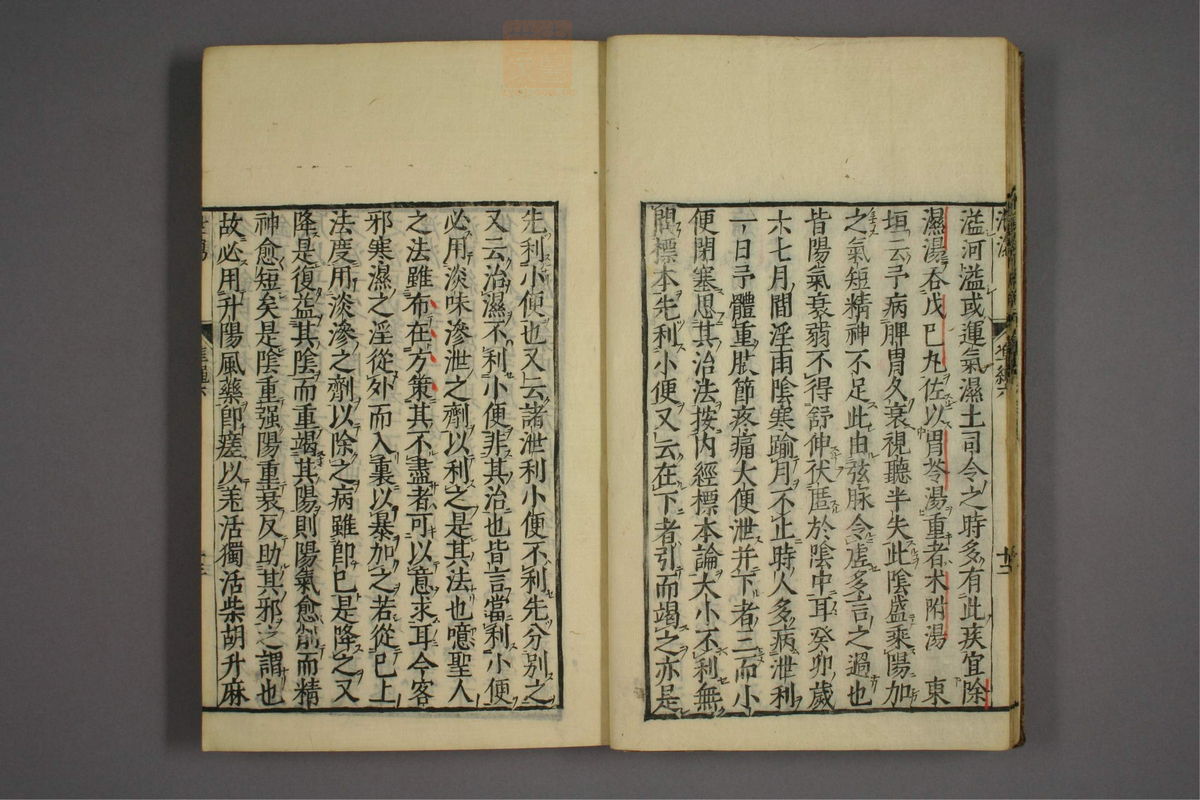 溢河溢或運氣濕土司令之時多有此疾宜除
濕湯吞戊巳丸佐以胃苓湯重者术附湯 東
垣云予病脾胃久衰視聽半失此陰盛乘陽加
之氣短精神不足此由弦脉令虛多言之過也
皆陽氣衰弱不得舒伸伏匿於陰中耳癸卯歲
六七月間淫雨陰寒踰月不止時人多病泄利
一日予體重肢節疼痛大便泄并下者三而小
便閉塞思其治法按内經標本論大小不利無
問標本先利小便又云在下者引而竭之亦是
先利小便也又云諸泄利小便不利先分別之
又云治濕不利小便非其治也皆言當利小便
必用淡味滲泄之劑以利之是其法也噫聖人
之法雖布在方策其不盡者可以意求耳今客
邪寒濕之淫從外而入裏以暴加之若從巳上
法度用淡滲之劑以除之病雖即巳是降之又
降是復益其陰而重竭其陽則陽氣愈削而精
神愈短矣是陰重强陽重衰反助其邪之謂也
故必用升陽風藥即瘥以羌活獨活柴胡升麻